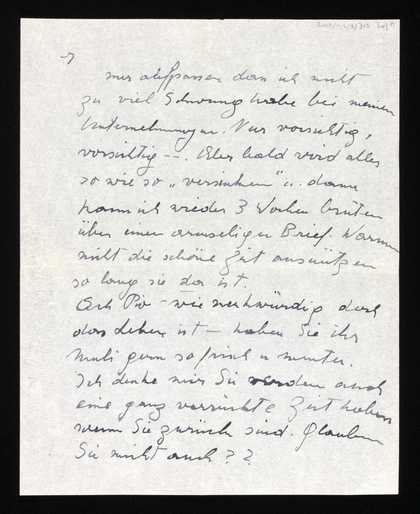 nur aufpassen dass ich nicht
zu viel Schwung habe bei meinen
Unternehmungen. Nur vorsichtig,
vorsichtig --. Aber bald wird alles
so wie so „versinken" u. dann
kann ich wieder 3 Wochen brüten
über einen armseligen Brief. Warum
nicht die schöne Zeit ausnützen
so lang sie da ist.
Ach – wie merkwürdig doch
das Leben ist – haben Sie ihr
gern so frisch u munter.
Ich denke mir Sie werden auch
eine ganz verrückte Zeit haben
wenn Sie zurück sind. Glauben
Sie nicht auch ? ?